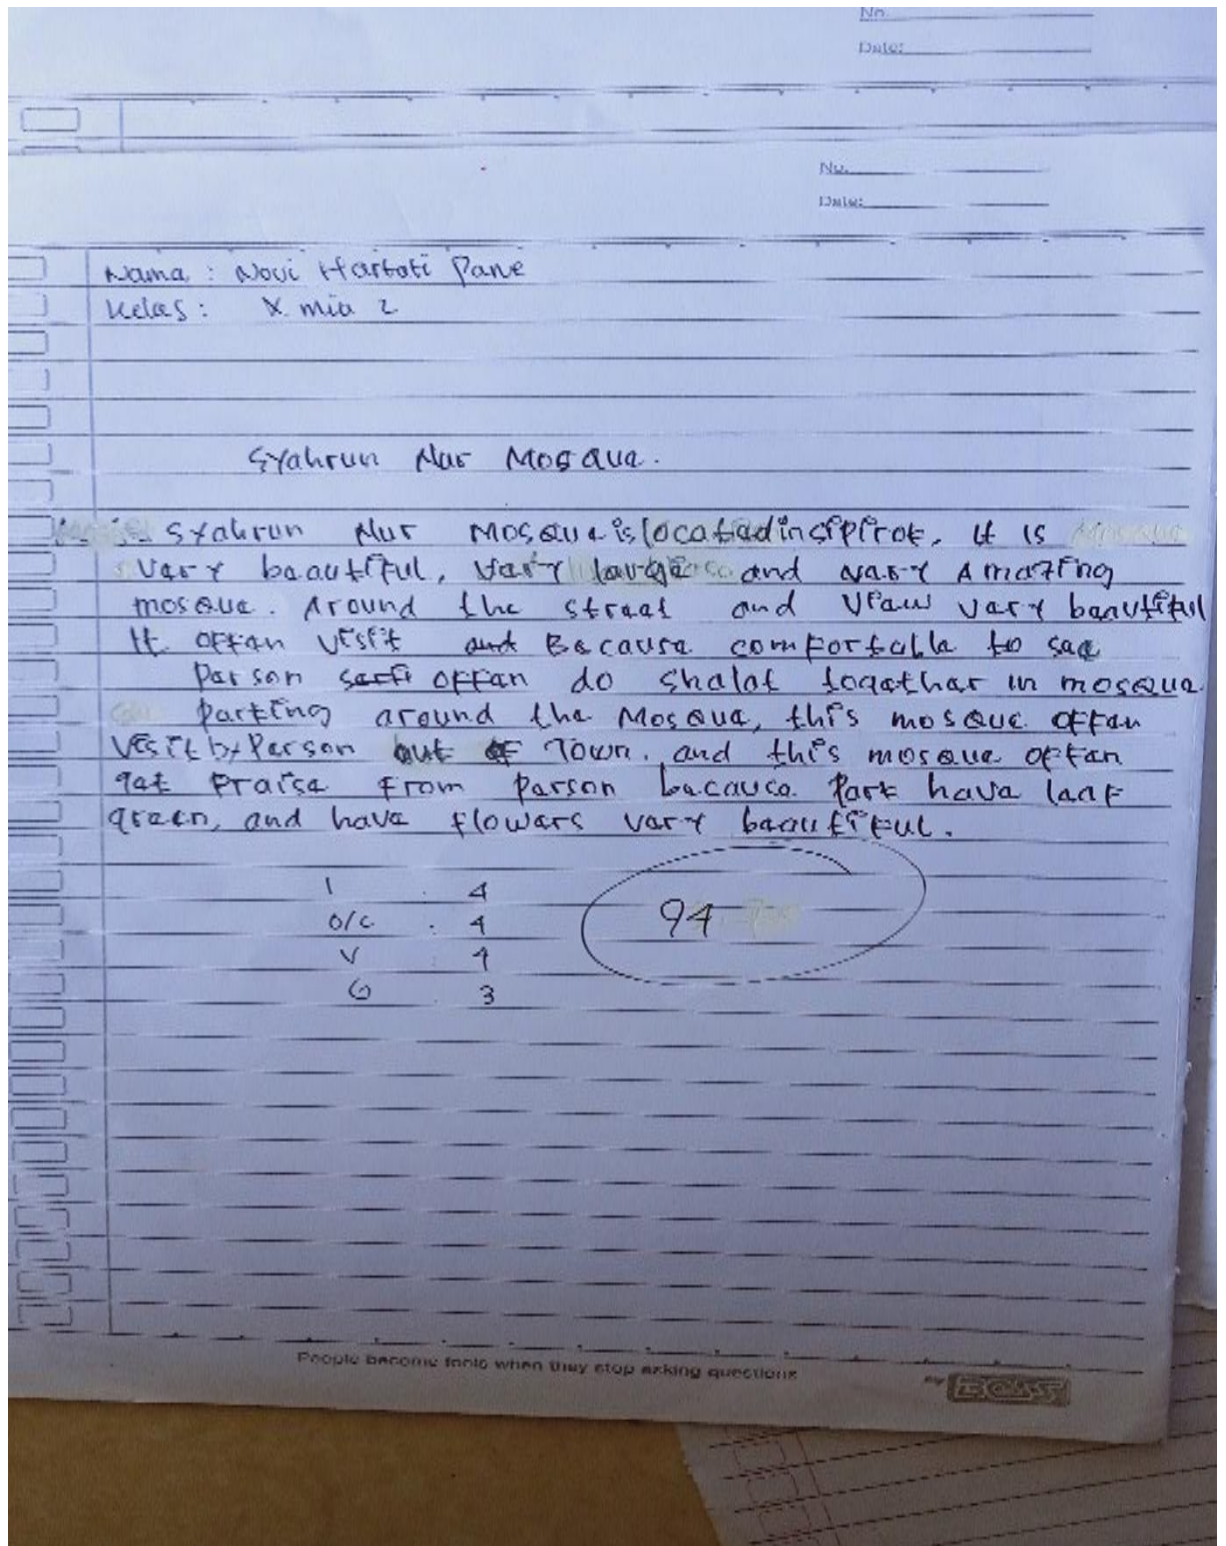 No.
Date:
No.
Date:
Nama : Novi Hartati Pane
Kelas : X mia 2
Syahrun Nur Mosque.
Syahrun Nur Mosque is located in sipirok. It is
very beautiful, very large and very Amazing
mosque. Around the street and view very beautiful
It often visit and Because comfortable to see
Person often do shalat together in mosque
Parking around the Mosque, this mosque often
visit by Person out of Town. and this mosque often
get praise from person because Park have leaf
green, and have flowers very beautiful.
I : 4
O/C : 4
V : 4
G : 3
94
People become fools when they stop asking questions
By BOSS